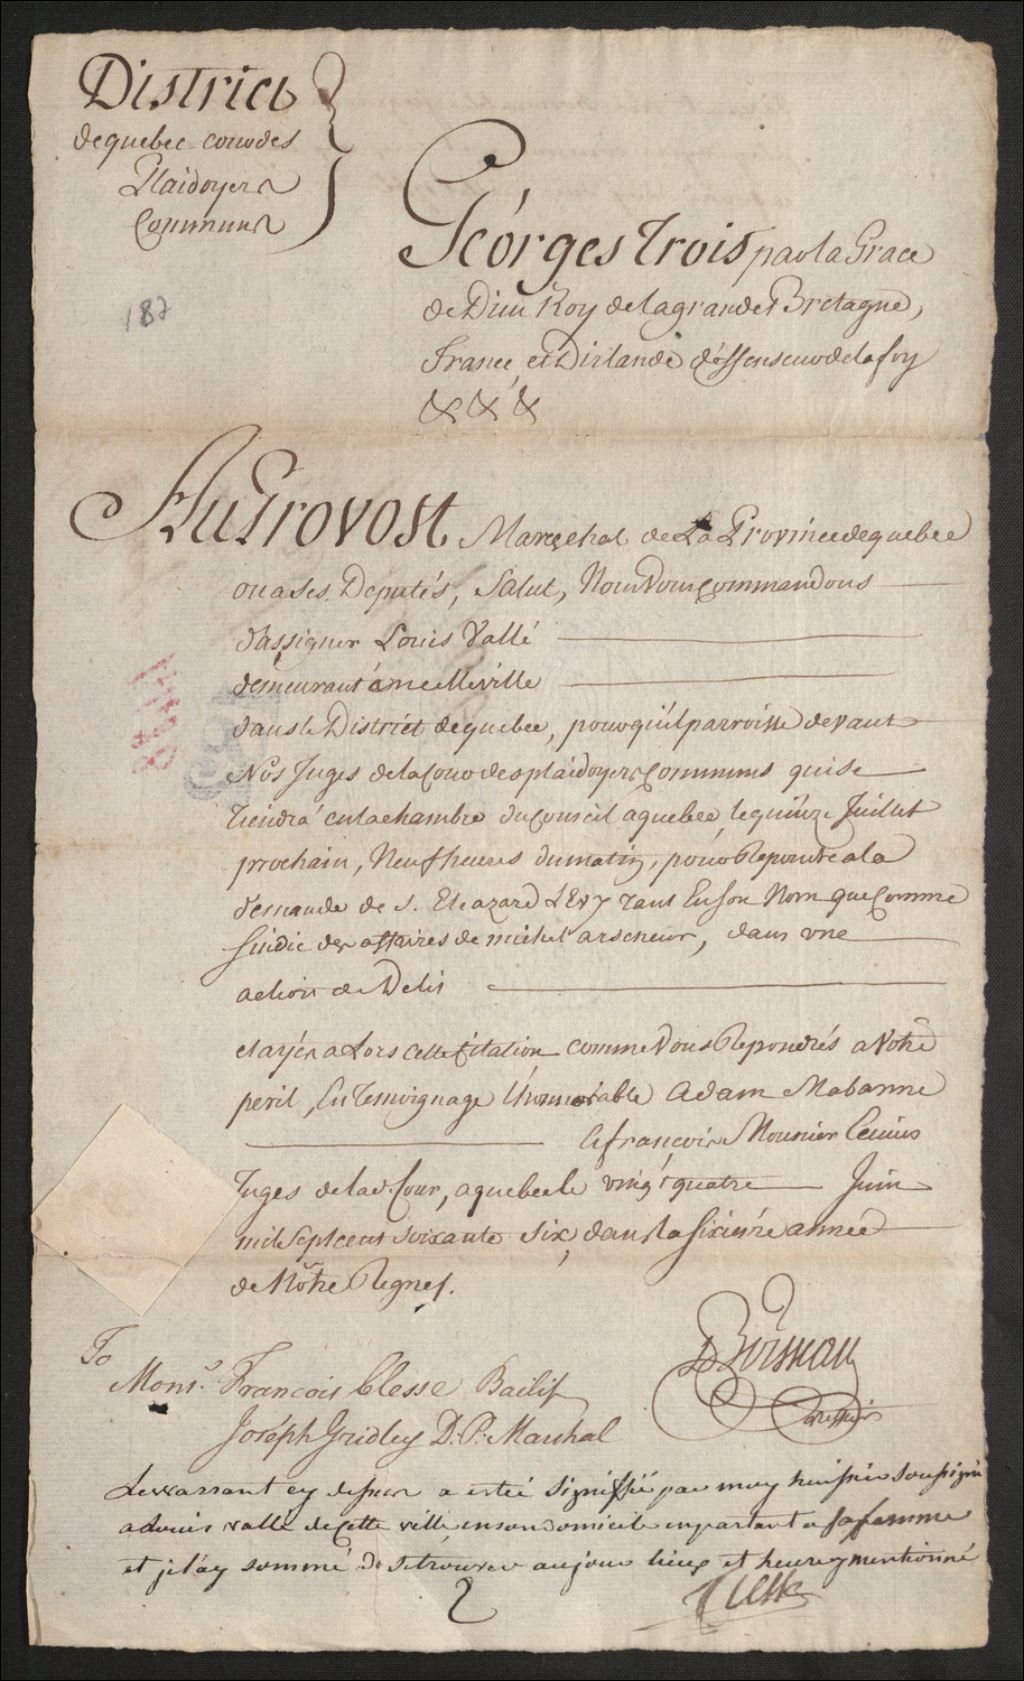 District
de quebec cour des
Plaidoyers
Communs
187
Géorges Trois par la Grace
de Dieu Roy de la grande Bretagne,
France, et D'irlande déffenseur de la foy
&c &c &c
Au Provost Maréchal de La Province de quebec
ou a ses Deputés, Salut, Nous Vous Commandons
d'assigner Louis Vallé
demeurant á mcelleville
dans le District de quebec, pour qu'il parroisse devant
Nos Juges de la Cour des plaidoyers Communs qui se
tiendra en la chambre du Conseil a quebec, le quinze Juillet
prochain, Neuf heures du matin, pour Repondre a la
demande de S. Eleazard LEvy tant En son Nom que Comme
Sindic des affaires de michel arseneur, dans une
action de Delis
et ayés a Lors cette Citation comme Vous Repondrés a Votre
peril, En Temoignage L'honnorable Adam Mabanne
et françois Mounier Ecuiers
Juges de lad. Cour, a quebec le vingt quatre Juin
mil Sept cent soixante six, dans la sixiéme année
de Nôtre Regne.
DBoisseau
Greffier
To
Monsr. François Clesse Bailif
Joséph Gridley D: P: Marshal
Le warrant cy dessus a estée signiffié par moy huissier soussigné
a Louis vallé de cette ville en son domicile en parlant a sa femme
et je l'ay sommé de se trouver au jour lieux et heure y mentionné
Clesse
2